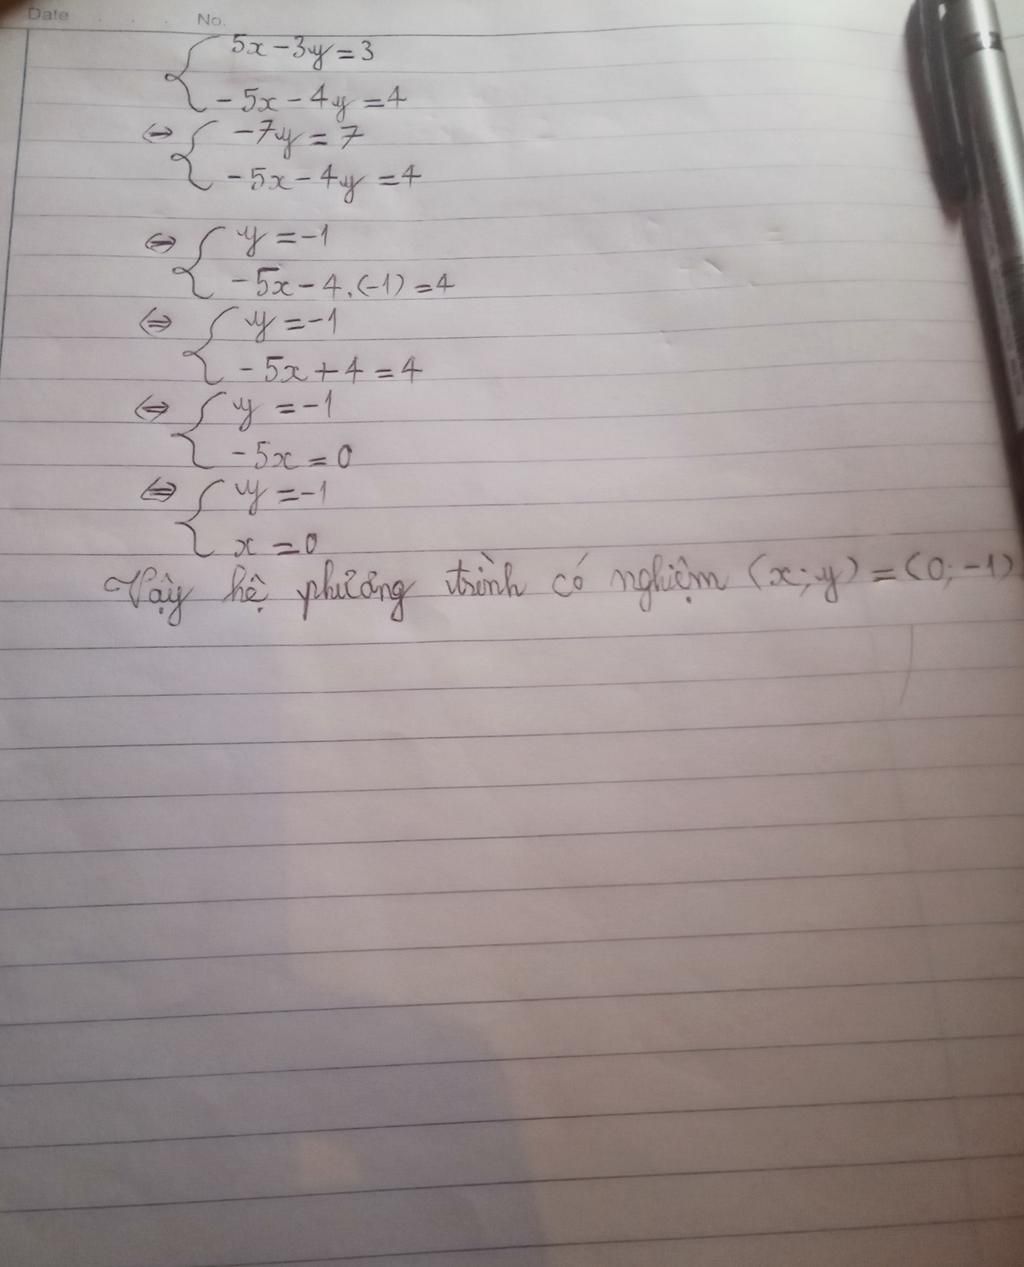 Date . . . No.
5x - 3y = 3
- 5x - 4y = 4
⇔ - 7y = 7
- 5x - 4y = 4
⇔ y = -1
- 5x - 4.(-1) = 4
⇔ y = -1
- 5x + 4 = 4
⇔ y = -1
- 5x = 0
⇔ y = -1
x = 0
Vậy hệ phương trình có nghiệm (x; y) = (0; -1)